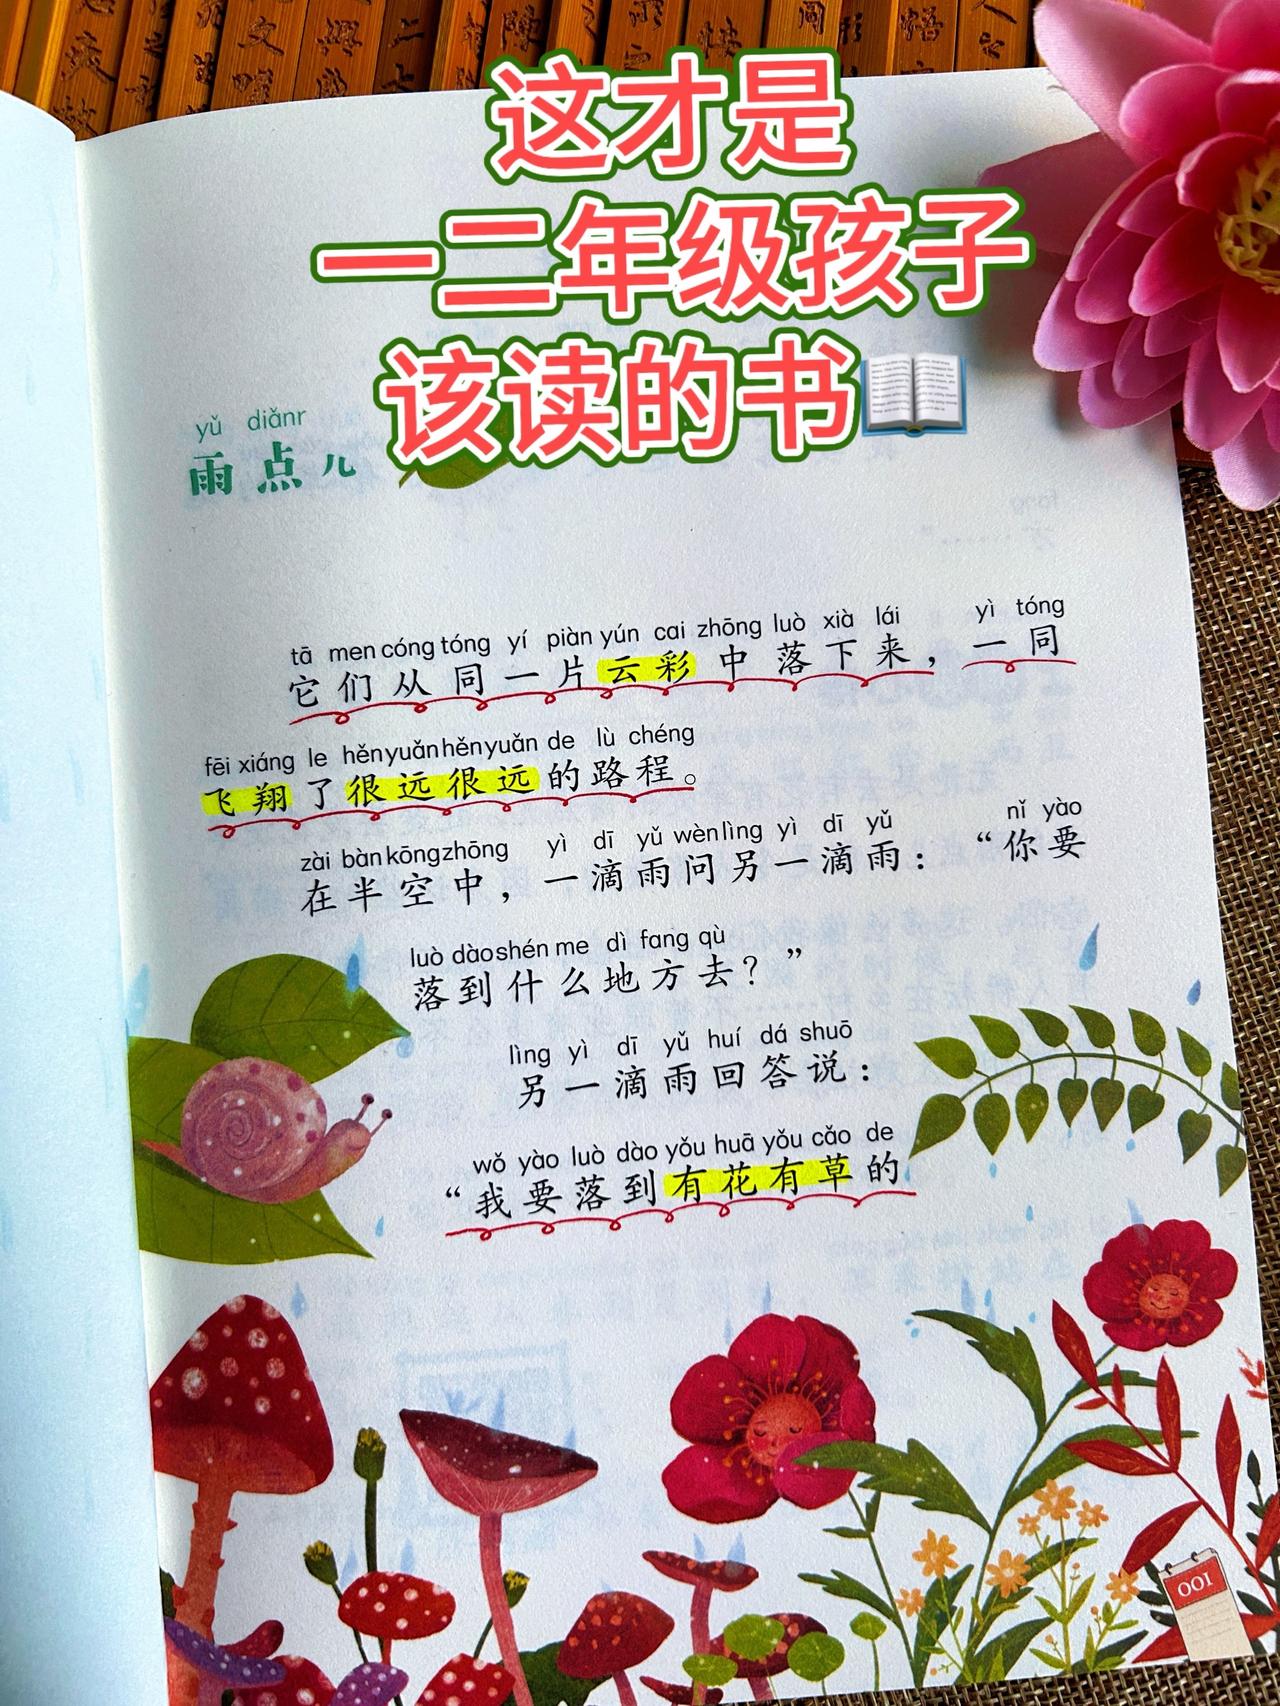 这才是
一二年级孩子
该读的书
yǔ diǎnr
雨点儿
tā men cóng tóng yí piàn yún cai zhōng luò xià lái yì tóng
它们从同一片云彩中落下来，一同
fēi xiáng le hěn yuǎn hěn yuǎn de lù chéng
飞翔了很远很远的路程。
zài bàn kōng zhōng yì dī yǔ wèn lìng yì dī yǔ nǐ yào
在半空中，一滴雨问另一滴雨：“你要
luò dào shén me dì fang qù
落到什么地方去？”
lìng yì dī yǔ huí dá shuō
另一滴雨回答说：
wǒ yào luò dào yǒu huā yǒu cǎo de
“我要落到有花有草的
001